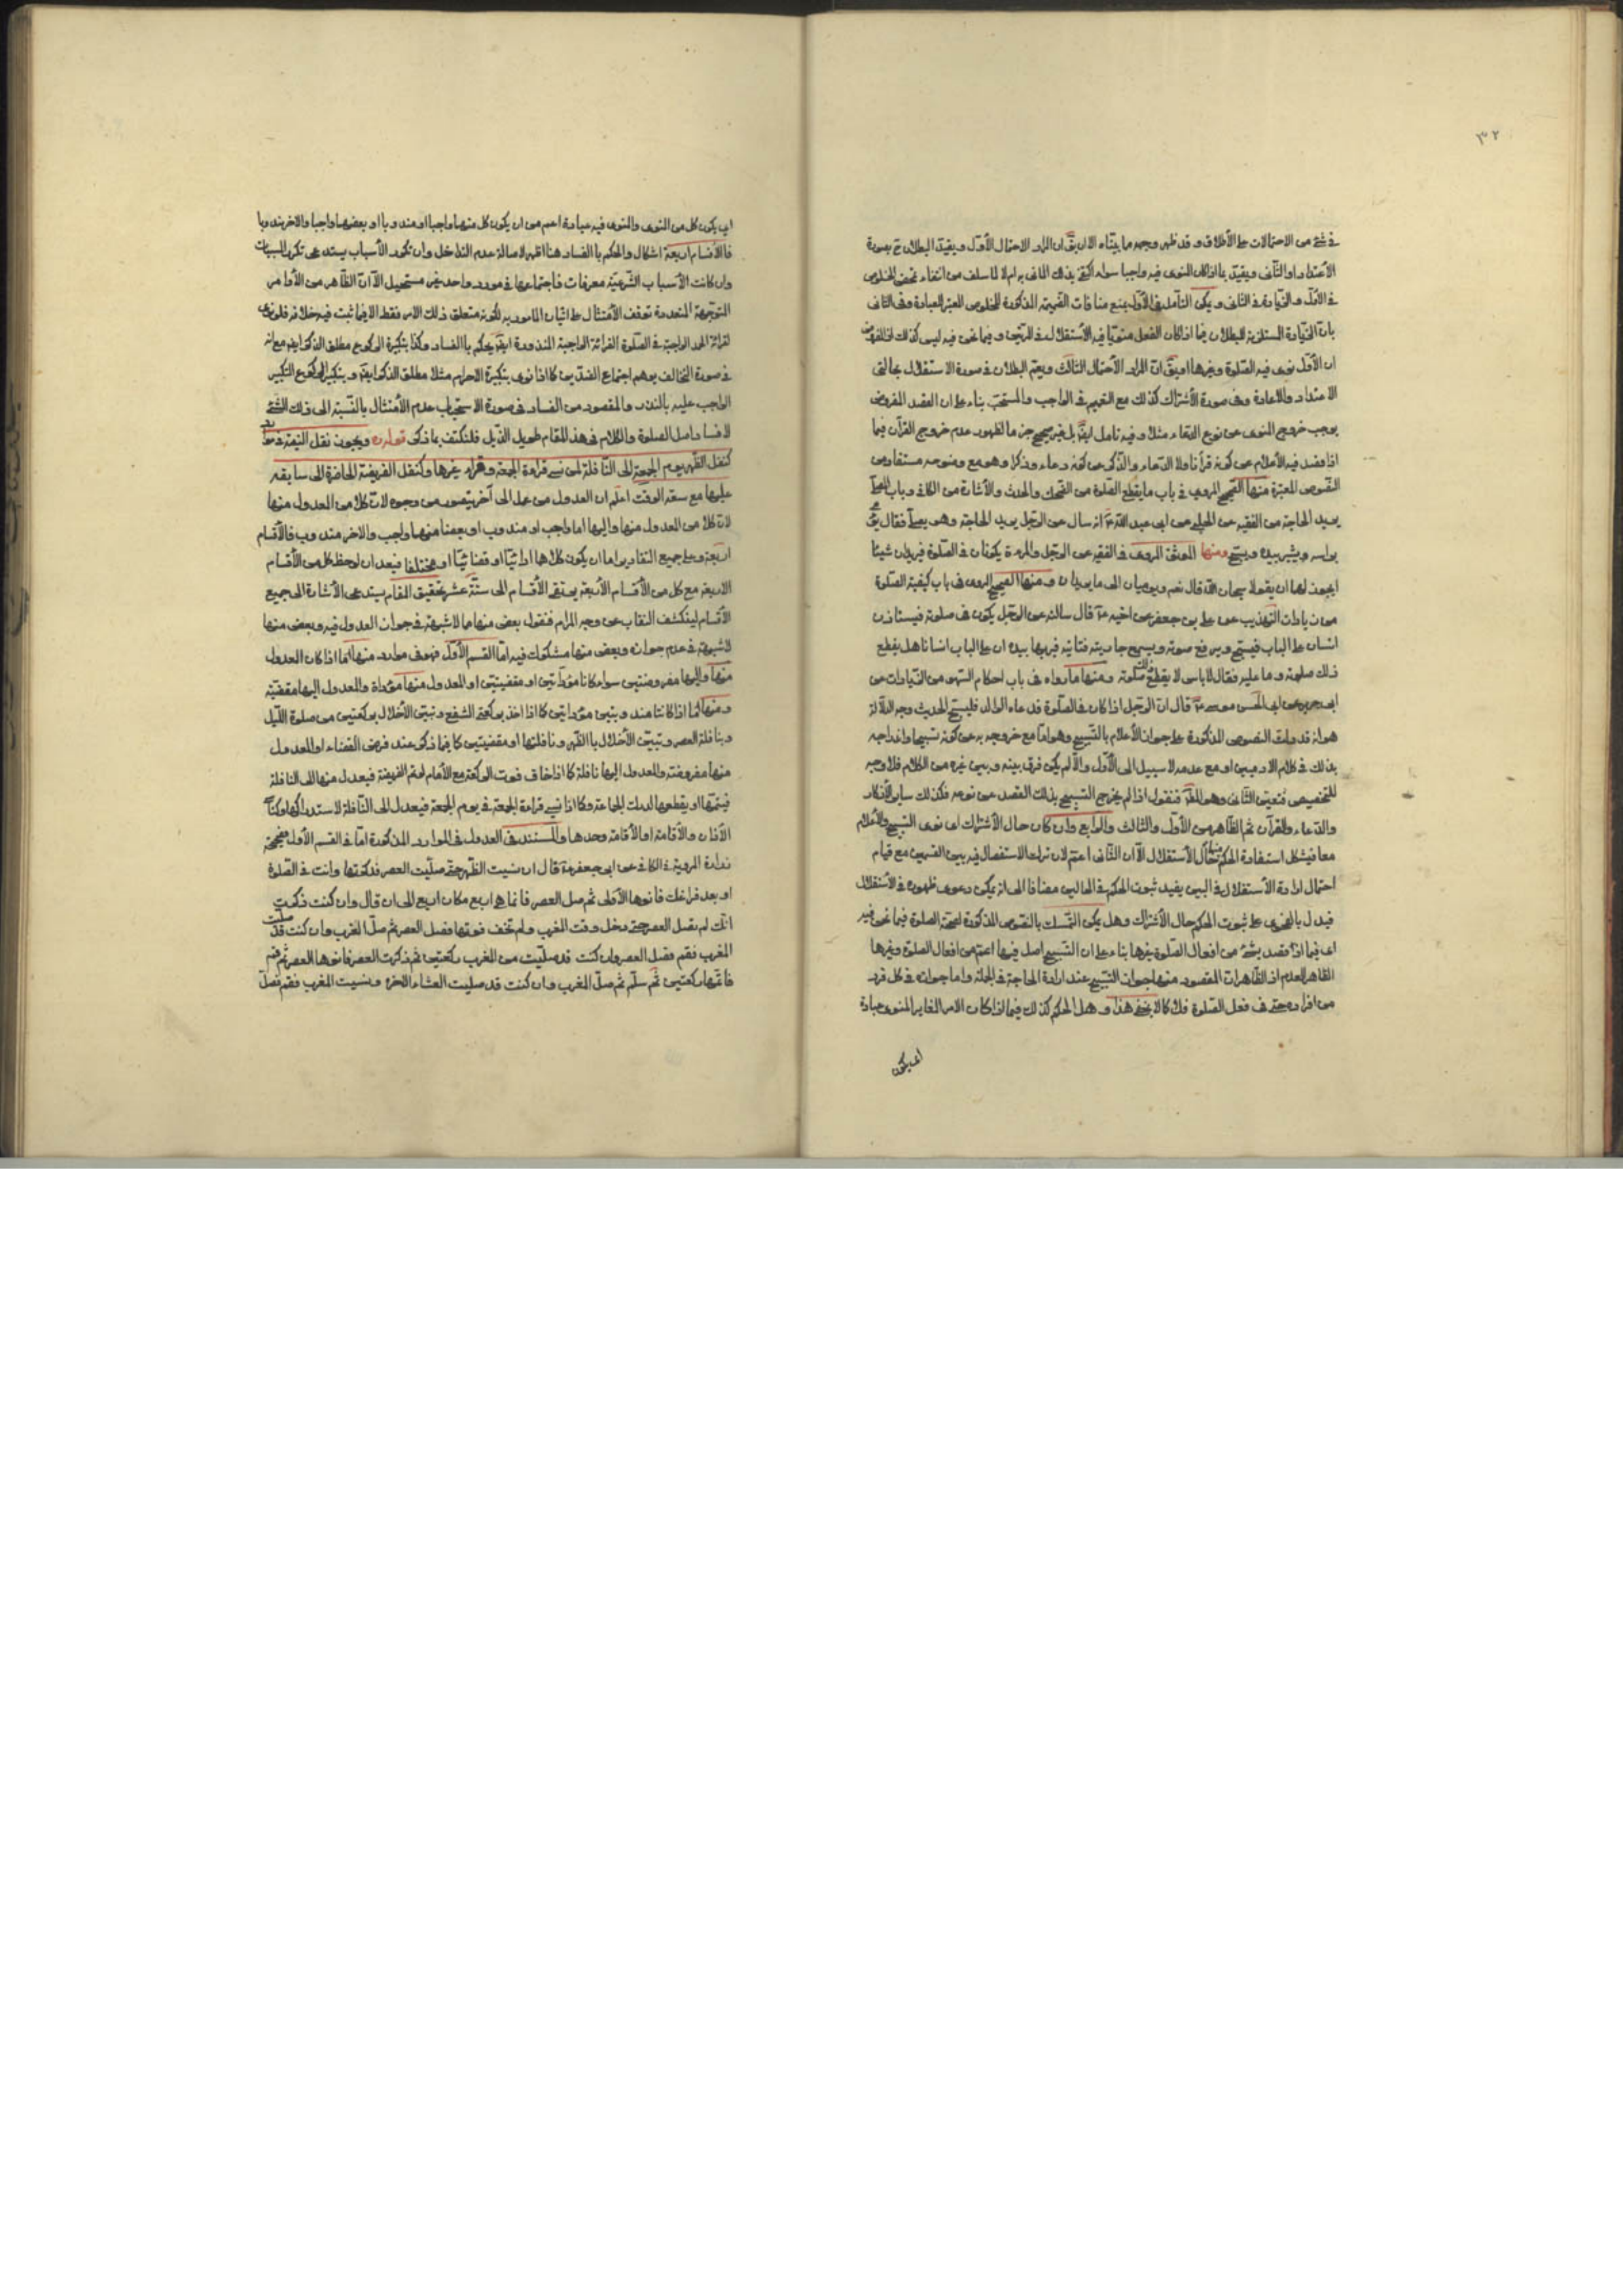 ٣٢
في شئ من الاحتمالات على الأطلاق وقد ظهر وجهه ما بيناه الا ان يقّ ان المراد الاحتمال الأوّل ويقيد البطلان ح بصورة
الأعتداد او الثاني ويقيد بما اذا كان المنوى فيه واجبا سواء اكتفى بذلك الماتى به ام لا لما سلف من انتفاء تمحض الخلوص
في الأوّل والزيادة في الثاني ويمكن التأمل في الأوّل بمنع منافات الضميمة المذكورة للخلوص المعتبر العبادة وفي الثاني
بان الزيادة المستلزمة للبطلان فيما اذا كان الفعل متمحضا فيه الأستقلال في الجزئى وفيما نحن فيه ليس كذلك اذ المفروض
ان الأوّل نوى فيه الصلوة وغيرها او يقّ انّ المراد الأحتمال الثالث ويعمّ البطلان في صورة الاستقلال بحالتى
الاعتداد والاعادة وفي صورة الأشتراك كذلك مع التعميم في الواجب والمستحب بناء على ان القصد المفروض
يوجب خروج المنوى عن نوع الدعاء مثلا وفيه تامل ايضا بل غير صحيح جزما لظهور عدم خروج القرآن فيما
اذا قصد فيه الأعلام عن كونه قرآنا ولا الدعاء والذكر عن كونه دعاء وذكرا وهو مع وضوحه مستفاد من
النصوص المعتبرة منها الصحيح المروى في باب ما يقطع الصلوة من الضحك والحدث والأشارة من الكافي وباب المصلّ
يريد الحاجة من الفقيه عن الحلبي عن ابي عبد الله ع انه سال عن الرجل يريد الحاجة وهو يصلّ فقال يؤمى
براسه ويشير بيده ويسبّح ومنها الموثق المروى في الفقيه عن الرجل والمرءة يكونان في الصلوة فيريدان شيئا
ايجوز لهما ان يقولا سبحان الله قال نعم ويوميان الى ما يريدان ومنها الصحيح المروى في باب كيفية الصلوة
من زيادات التهذيب عن على بن جعفر عن اخيه ع قال سالته عن الرجل يكون في صلوته فيستاذن
انسان على الباب فيسبّح ويرفع صوته ويسمع جاريته فتاتيه فيريها بيده ان على الباب انسانا هل يقطع
ذلك صلوته وما عليه فقال لا باس لا يقطع ذلك صلوته ومنها ما رواه في باب احكام السهو من الزيادات عن
ابي جرير عن ابي الحسن موسى ع قال انّ الرجل اذا كان في الصلوة فدعاه الوالد فليسبّح الحديث وجه الدلالة
هو انه قد دلت النصوص المذكورة على جواز الأعلام بالتسبيح وهو امّا مع خروجه به عن كونه تسبيحا واندراجه
بذلك في كلام الادميين او مع عدمه لا سبيل الى الأوّل والّا لم يكن فرق بينه وبين غيره من الكلام فلا وجه
للتخصيص فتعين الثاني وهو المطّ فنقول اذا لم يخرج التسبيح بذلك القصد عن نوعه فكذلك سائر الأذكار
والدعاء والقرآن ثم الظاهر من الأوّل والثالث والرابع وان كان حال الأشتراك اى نوى التسبيح والأعلام
معا فيشكل استفادة الحكم منها حال الأستقلال الّا ان الثاني اعمّ لان ترك الاستفصال فيه بين القسمين مع قيام
احتمال ارادة الأستقلال في البين يفيد ثبوت الحكم في الحالين مضافا الى انه يمكن دعوى ظهوره في الأستقلال
فيدل بالفحوى على ثبوت الحكم حال الأشتراك وهل يمكن التمسك بالنصوص المذكورة لصحّة الصلوة فيما نحن فيه
اى فيما اذا قصد بشئ من افعال الصلوة غيرها بناء على ان التسبيح اصل فيها اعمّ من افعال الصلوة وغيرها
الظاهر العدم اذ الظاهر ان المقصود منها جواز التسبيح عند ارادة الحاجة في الجملة واما جوازه في كل فرد
من افراده حتى في فعل الصلوة فلا كما لا يخفى هذا وهل الحكم كذلك فيما اذا كان الامر المغاير المنوى عبادة
اى يكون
اى يكون كل من المنوى والمنوى فيه عبادة اعم من ان يكون كل منهما واجبا او مندوبا او بعضهما واجبا والاخر مندوبا
فالأقسام اربعة اشكال والحكم بالفساد هنا اظهر لاصالة عدم التداخل وان تعدد الأسباب يستدعى تكرر المسببات
وان كانت الأسباب الشرعيّة معرفات فاجتماعها في مورد واحد غير مستحيل الّا ان الظاهر من الأوامر
المتوجهة المتعددة توقف الأمتثال على اتيان المامور به لكونه متعلق ذلك الامر فقط الا فيما ثبت فيه خلافه فلو نوى
لقرائة الحمد الواجبة في الصلوة القرائة الواجبة المنذورة ايضا يحكم بالفساد وكذا بتكبيرة الركوع مطلق الذكر ايضا مع انه
في صورة التخالف يوهم اجتماع الضدين كما اذا نوى بتكبيرة الاحرام مثلا مطلق الذكر ايضا وبتكبير الركوع التكبير
الواجب عليه بالنذر والمقصود من الفساد في صورة الاستحباب عدم الأمتثال بالنسبة الى ذلك الشئ
لا فساد اصل الصلوة والكلام في هذا المقام طويل الذيل فلنكتف بما ذكر قوله ره ويجوز نقل النية في موارد
كنقل الظهر يوم الجمعة الى النافلة لمن نسى قراءة الجمعة وقراء غيرها وكنقل الفريضة الحاضرة الى سابقه
عليها مع سعة الوقت اعلم ان العدول من عمل الى آخر يتصور من وجوه لان كلا من المعدول منها
لان كلا من المعدول منها واليها اما واجب او مندوب او بعضا منهما واجب والاخر مندوب فالأقسام
اربعة وعلى جميع التقادير اما ان يكون كلاهما ادائيّا او قضائيّا او مختلفا فبعد ان لوحظ كل من الأقسام
الاربعة مع كل من الأقسام الأربعة يرتقى الأقسام الى ستّة عشر تحقيق المقام يستدعى الأشارة الى جميع
الأقسام لينكشف النقاب عن وجه المرام فنقول بعض منها مما لا شبهة في جواز العدول فيه وبعض منها
لا شبهة في عدم جوازه وبعض منها مشكوك فيه امّا القسم الأوّل فهو في موارد منها ما اذا كان العدول
منها واليها مفروضتين سواء كانا مؤداتين او مقضيتين او المعدول منها مؤداة والمعدول اليها مقضيّة
ومنها ما اذا كانتا مندوبتين مؤداتين كما اذا اخذ بركعتى الشفع وتبين الأخلال بركعتين من صلوة الليل
وبنافلة العصر وتبين الأخلال بالظهر ونافلتها او مقضيتين كما فيما ذكر عند فرض القضاء او المعدول
منها مفروضة والمعدول اليها نافلة كما اذا خاف فوت الركعة مع الأمام لو تم الفريضة فيعدل منها الى النافلة
فيتمّها او يقطعها لدرك الجماعة وكما اذا نسى قراءة الجمعة في يوم الجمعة فيعدل الى النافلة لاستدراكها وكناسى
الأذان والأقامة او الأقامة وحدها والمستند في العدول في الموارد المذكورة امّا في القسم الأول فصحيحة
زرارة المروية في الكافي عن ابي جعفر ع قال ان نسيت الظهر حتى صليت العصر فذكرتها وانت في الصلوة
او بعد فراغك فانوها الأولى ثم صل العصر فانما هي اربع مكان اربع الى ان قال وان كنت ذكرت
انّك لم تصل العصر حتى دخل وقت المغرب ولم تخف فوتها فصل العصر ثم صلّ المغرب وان كنت قد صليت
المغرب فقم فصل العصر وان كنت قد صلّيت من المغرب ركعتين ثم ذكرت العصر فانوها العصر ثم قم
فاتمّها ركعتين ثم سلّم ثم صلّ المغرب وان كنت قد صليت العشاء الاخرة ونسيت المغرب فقم فصلّ